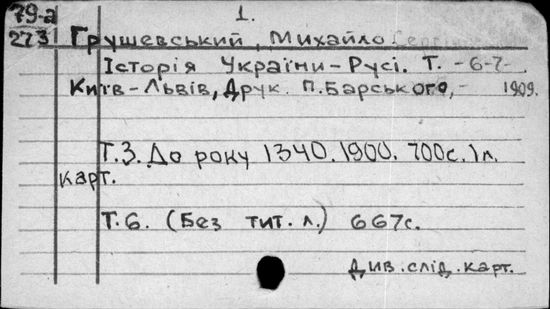 79-а 1.
273 Грушевський, Михайло
Історія України-Русі. Т. -6-7-
Київ-Львів, Друк. П.Барського,- 1909.
Т.3. До року 1340. 1900. 700с. 1 л.
карт.
Т.6. (Без тит. л.) 667с.
Див. слід. карт.